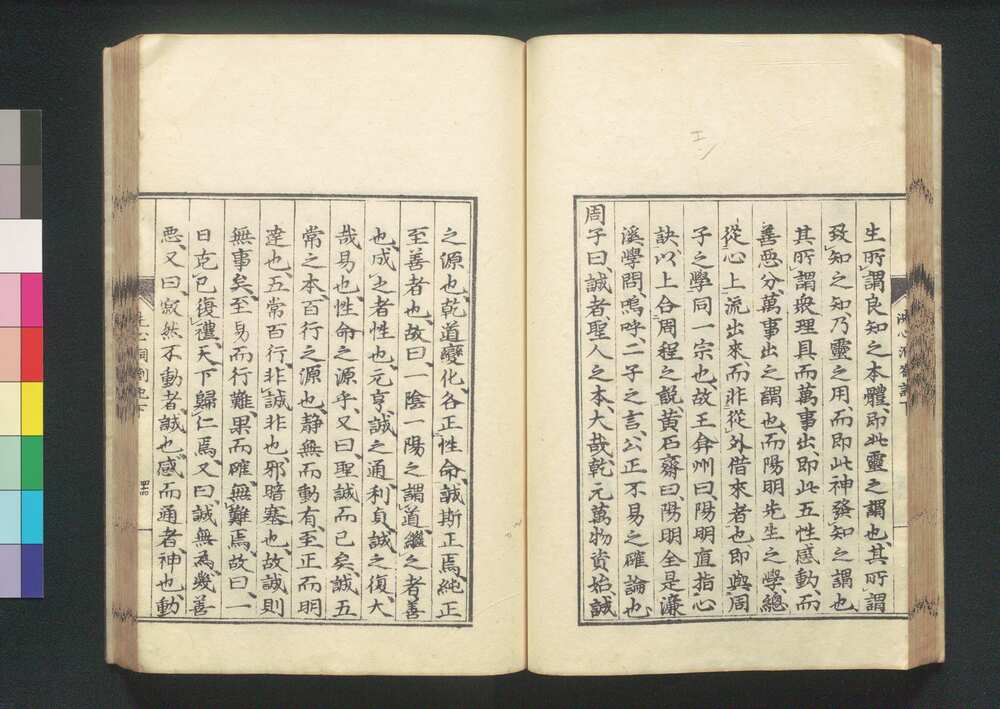 生所謂良知之本體、即此靈之謂也、其所謂
致知之知乃靈之用、而即此神發知之謂也
其所謂衆理具而萬事出、即此五性感動、而
善惡分萬事出之謂也、而陽明先生之學、總
從心上流出來、而非從外借來者也、即與周
子之學同一宗也、故王弇州曰、陽明直指心
訣以上合周程之說、黃石齋曰、陽明全是濂
溪學問、嗚呼、二子之言、公正不易之確論也、
周子曰、誠者、聖人之本、大哉乾元、萬物資始、誠
之源也、乾道變化、各正性命、誠斯正焉、純正
至善者也、故曰、一陰一陽之謂道、繼之者善
也、成之者性也、元亨、誠之通、利貞、誠之復、大
哉易也、性命之源乎、又曰、聖誠而已矣、誠五
常之本、百行之源也、静無而動有、至正而明
達也、五常百行、非誠非也、邪暗塞也、故誠則
無事矣、至易而行難、果而確、無難焉、故曰、一
日克已復禮、天下歸仁焉、又曰、誠無為、幾善
惡、又曰、寂然不動者、誠也、感而通者、神也、動
洗心洞劄記下
四十四